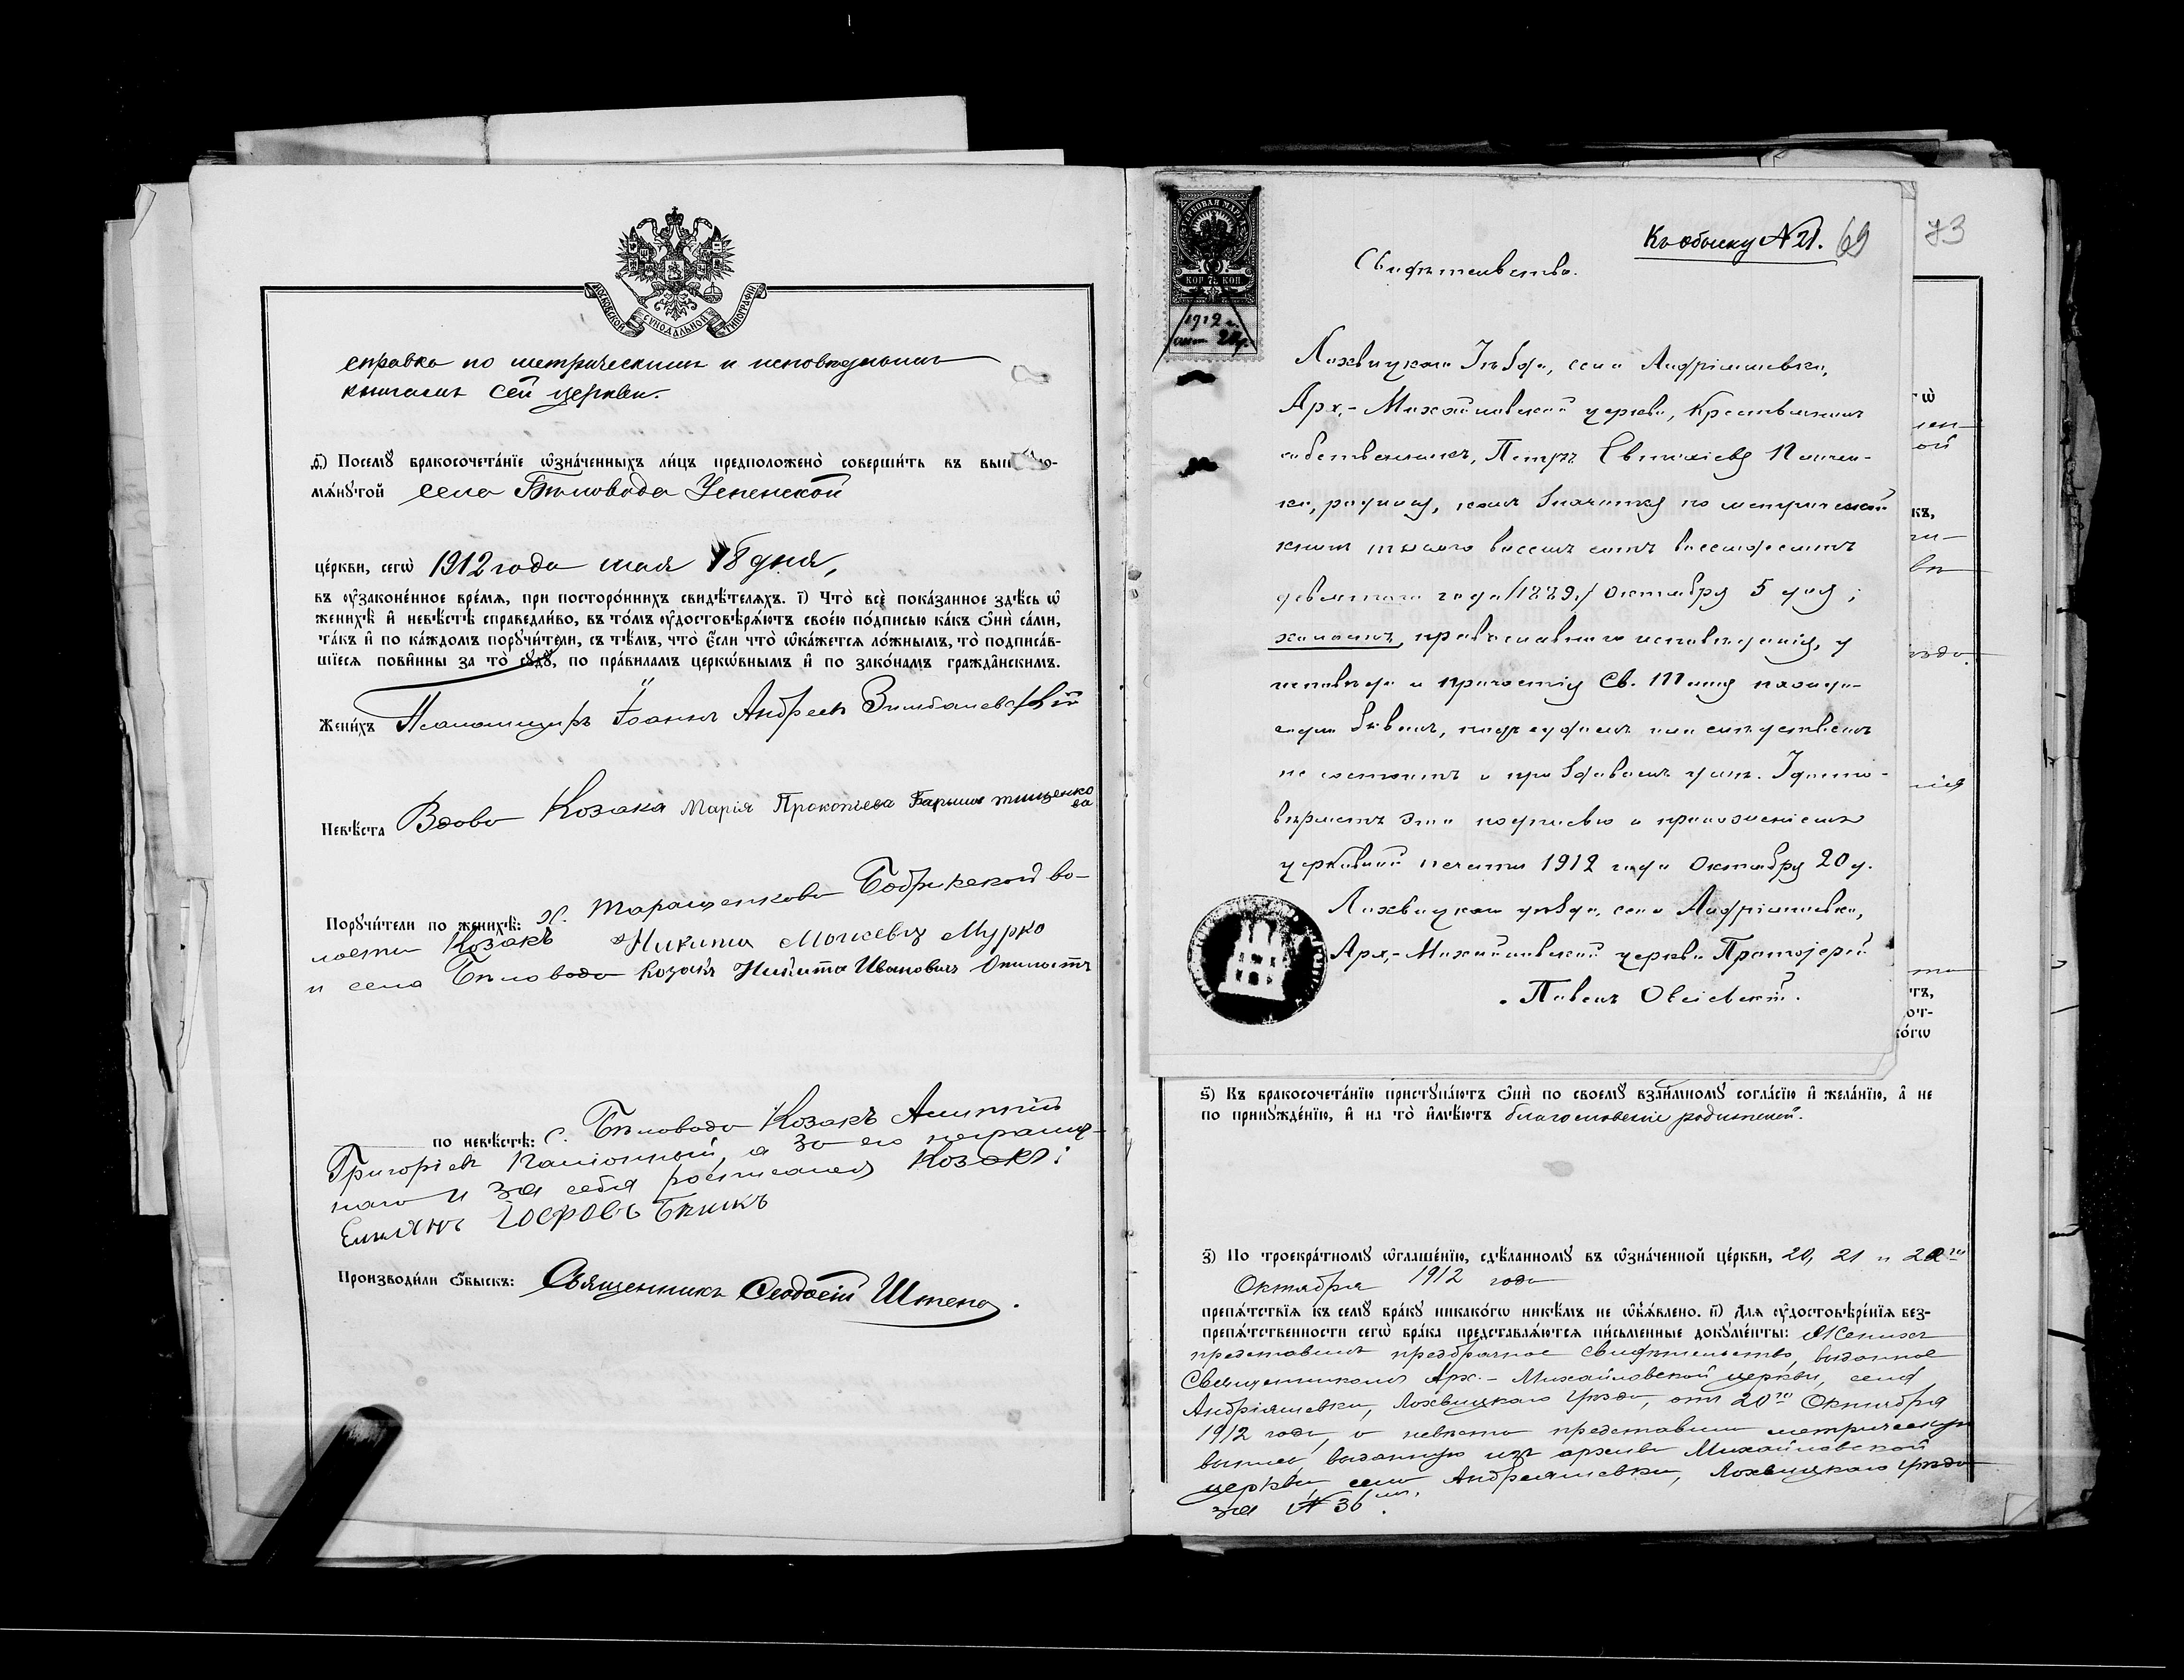 МОСКОВСКОЙ СѴНОДАЛЬНОЙ ТИПОГРАФІИ
справка по метрическимъ и исповѣднымъ
книгамъ сей церкви.
ѳ҃) Посемꙋ̀ бракосочета́нїе ѡ҆зна́ченныхъ ли́цъ предположено̀ соверши́ть въ
мѧ́нꙋтой села Бѣловода Успенской
це́ркви, сегѡ̀ 1912 года мая 18 дня,
въ оу҆зако́ненное вре́мѧ, при посторо́ннихъ свидѣ́телѧхъ. і҃) Что̀ всѐ пока́занное здѣ́сь ѡ҆
женихѣ̀ и҆ невѣ́стѣ справедли́во, въ то́мъ оу҆достовѣрѧ́ютъ свое́ю по́дписью ка́къ ѻ҆нѝ са́ми,
та́къ и҆ по ка́ждомъ порꙋчи́тели, съ тѣ́мъ, что̀ є҆́сли что̀ ѡ҆ка́жетсѧ ло́жнымъ, то̀ подписа́в-
шїесѧ пови́нны за то̀ сꙋдꙋ̀, по пра́виламъ церко́внымъ и҆ по зако́намъ гражда́нскимъ.
Жени́хъ Псаломщикъ Іоаннъ Андреевъ
Невѣ́ста Вдова Козака Марія Прокопіева
Порꙋчи́тели по женихѣ̀: х. Таращенкова Бобрикской во-
лости Козакъ Никита Моисеевъ Мурко
и села Бѣловода Козакъ Никита Ивановичъ
по невѣ́стѣ: с. Бѣловода Козакъ
Григоріевъ а за его неграмот-
наго и за себя росписался Козакъ:
Производи́ли ѻ҆́быскъ: Священникъ Ѳеодосій
Къ обыску № 21. 69
73
Свидѣтельство.
КОП 75 КОП
1912 г.
Лохвицкаго Уѣзда, села Андріяшевки,
Арх.-Михайловской церкви, Крестьянинъ
собственникъ, Петръ Евтихіевъ
родился, какъ значится по метрической
книгѣ тысяча восемь сотъ восемьдесятъ
девятаго года /1889./ Октября 5 дня;
холостъ, православнаго исповѣданія, у
исповѣди и причастія Св. Таинъ
бывалъ, подъ судомъ или слѣдствіемъ
не состоитъ и при здравомъ умѣ. Удосто-
вѣряетъ это подписью и приложеніемъ
церковной печати 1912 года Октября 20 д.
Лохвицкаго уѣзда, села Андріяшевки,
Арх.-Михайловской церкви Протоіерей
Павелъ
ѕ҃) Къ бракосочета́нїю пристꙋпа́ютъ ѻ҆нѝ по своемꙋ̀ взаи́мномꙋ согла́сїю и҆ жела́нїю, а҆ не
по принꙋжде́нїю, и҆ на то̀ и҆мѣ́ютъ благословеніе родителей.
з҃) По троекра́тномꙋ ѡ҆глаше́нїю, сдѣ́ланномꙋ въ ѡ҆зна́ченной це́ркви, 20, 21 и 22го
Октября 1912 года
препѧ́тствїѧ къ семꙋ̀ бра́кꙋ никако́гѡ никѣ́мъ не ѡ҆б̾ѧ́влено. и҃) Длѧ оу҆достовѣре́нїѧ без-
препѧ́тственности сегѡ̀ бра́ка представлѧ́ютсѧ пи́сьменные докꙋме́нты: Женихъ
представилъ предбрачное свидѣтельство, выданное
Священникомъ Арх.-Михайловской церкви, села
Андріяшевки, Лохвицкаго Уѣзда, отъ 20го Октября
1912 года, а невѣста представила метрическую
выпись выданную изъ архива Михайловской
церкви, села Андріяшевки, Лохвицкаго Уѣзда
за № 36